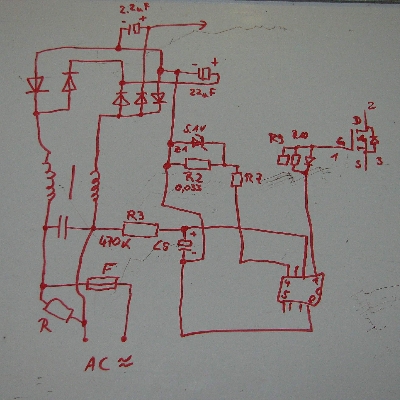 2.2uF
- +
- +
22uF
5.1V
Z1
R2
0,033
R7
R9
R10
D
2
G
1
S
3
R3
470K
C5
+
-
F
R
4
5
1
8
AC ≈